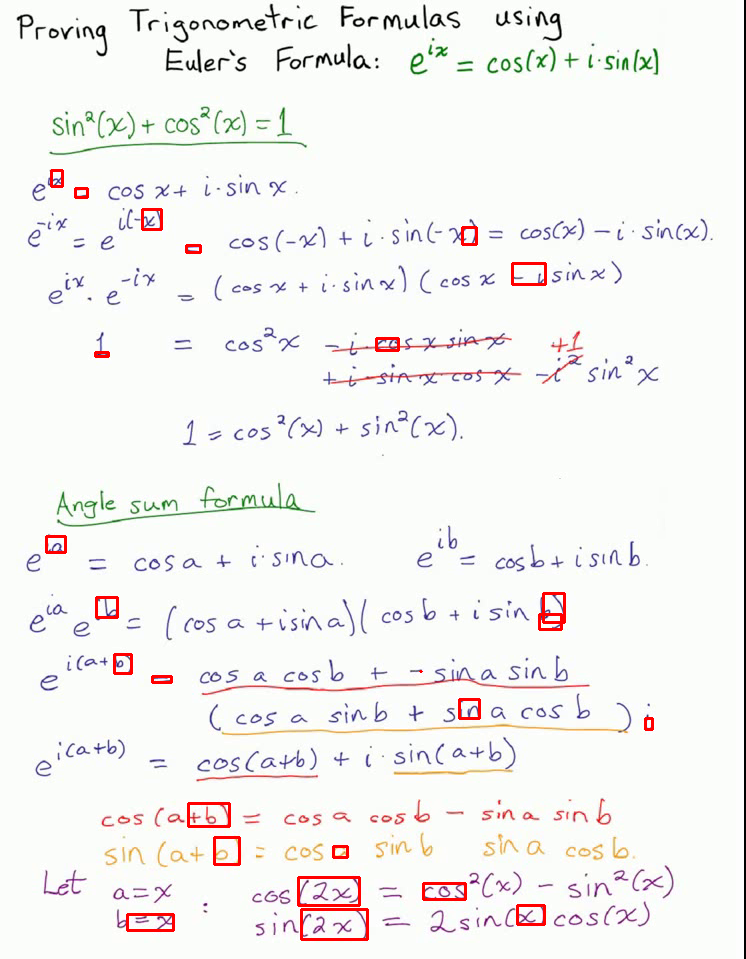 Proving Trigonometric Formulas using
Euler's Formula: e^{ix} = cos(x) + i·sin(x)
sin²(x) + cos²(x) = 1
e^{ix} = cos x + i·sin x.
e^{-ix} = e^{i(-x)} = cos(-x) + i·sin(-x) = cos(x) - i·sin(x).
e^{ix}·e^{-ix} = (cos x + i·sin x)(cos x - i sin x)
1 = cos²x - i·cos x sin x +1
+ i·sin x cos x - i² sin²x
1 = cos²(x) + sin²(x).
Angle sum formula
e^{ia} = cos a + i·sin a. e^{ib} = cos b + i sin b.
e^{ia} e^{ib} = (cos a + i sin a)(cos b + i sin b)
e^{i(a+b)} = cos a cos b + - sin a sin b
(cos a sin b + sin a cos b) i
e^{i(a+b)} = cos(a+b) + i·sin(a+b)
cos(a+b) = cos a cos b - sin a sin b
sin(a+b) = cos a sin b sin a cos b.
Let a = x : cos(2x) = cos²(x) - sin²(x)
b = x sin(2x) = 2sin(x) cos(x)